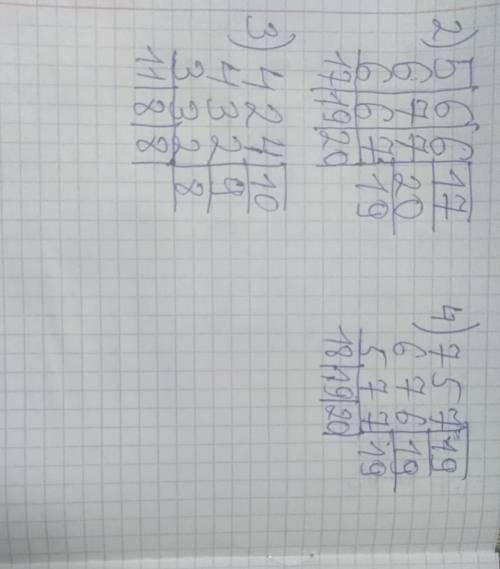 2) 5 6 6 17
6 7 7 20
6 6 7 19
17 19 20
3) 4 2 4 10
4 3 2 9
3 3 2 8
11 8 8
4) 7 5 7 19
6 7 6 19
5 7 7 19
18 19 20